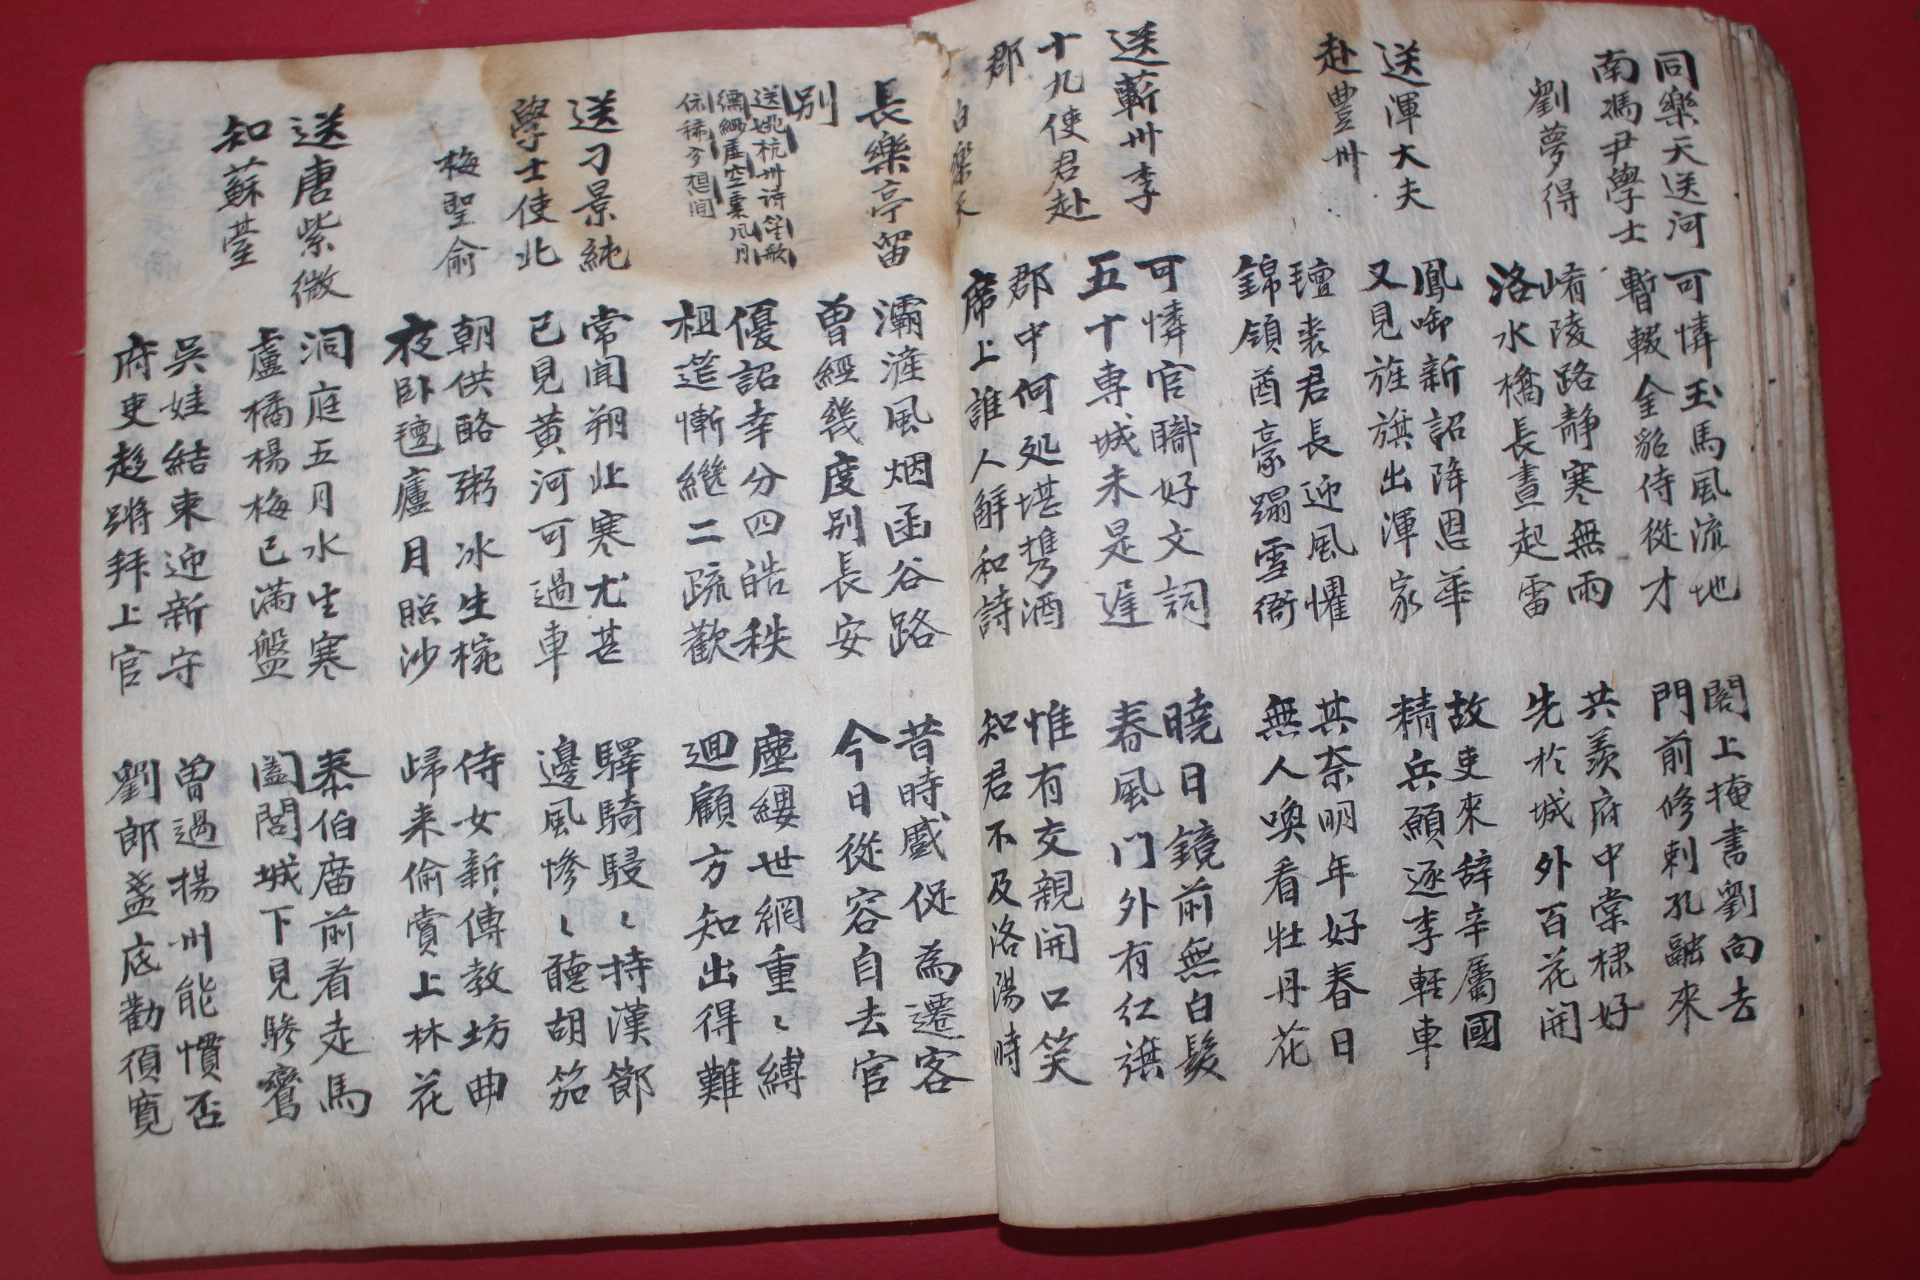 同樂天送河
南馮尹學士
劉夢得
可憐玉馬風流地
暫輟金貂侍從才
閣上掩書劉向去
門前修刺孔融來
崤陵路靜寒無雨
洛水橋長晝起雷
共羨府中棠棣好
先於城外百花開
送渾大夫
赴豊州
鳳啣新詔降恩華
又見旌旗出渾家
故吏來辞辛屬國
精兵願逐李輕車
氊裘君長迎風懼
錦領酋豪蹋雪衙
其奈明年好春日
無人喚看牡丹花
送蘄州李
十九使君赴
郡
白樂天
可憐官職好文詞
五十専城未是遅
曉日鏡前無白髮
春風门外有红旗
郡中何処堪携酒
席上誰人解和詩
惟有交親開口笑
知君不及洛陽時
長樂亭留
別
送姚杭州诗笙歌
縹緲虛空裏風月
依稀夢想间
灞滻風烟函谷路
曾經幾度別長安
昔時蹙促為遷客
今日從容自去官
優詔幸分四皓秩
祖筵慚繼二疏歡
塵纓世網重〻縛
迴顧方知出得難
送刁景純
學士使北
梅聖俞
常聞朔北寒尤甚
已見黃河可過車
驛騎駸〻持漢節
邊風慘〻聽胡笳
朝供酪粥冰生椀
夜卧氊廬月照沙
侍女新傳教坊曲
歸来偷賞上林花
送唐紫微
知蘇臺
洞庭五月水生寒
盧橘楊梅已滿盤
泰伯廟前看走馬
闔閭城下見驂鸞
吳娃結束迎新守
府吏趍蹡拜上官
曾過揚州能慣否
劉郎盞底勸須寬